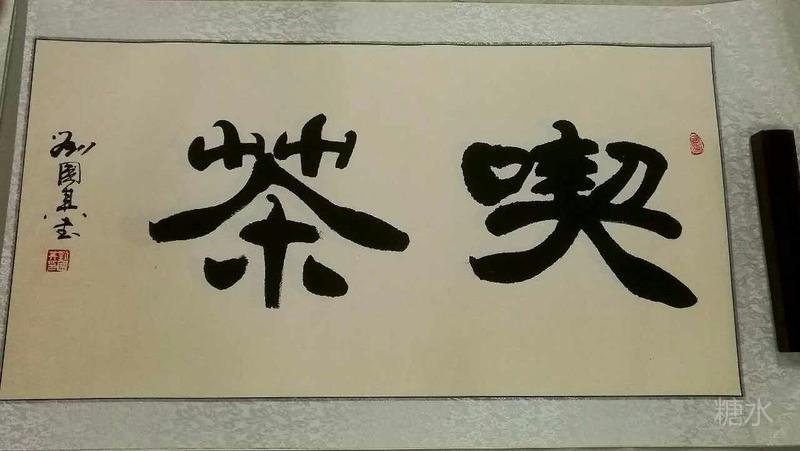 喫茶
刘国真书
糖水